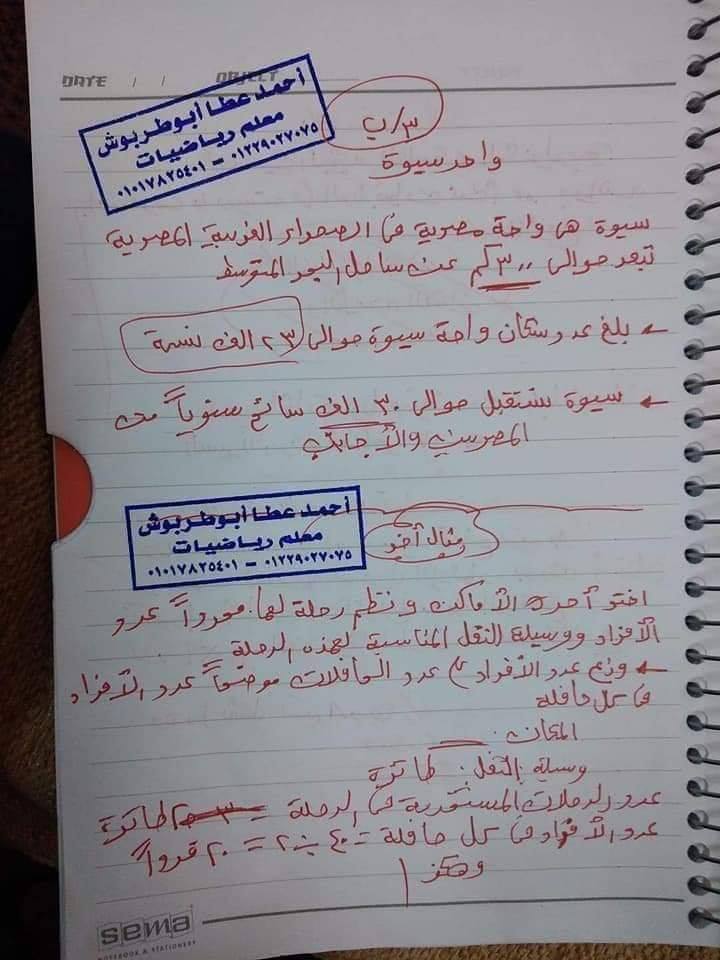 DATE / / OBJECT
أحمد عطا أبوطربوش
معلم رياضيات
٠١٢٢٩٠٢٧٠٧٥ – ٠١٠١٧٨٢٥٤٠١
٣/ب
واحد سيوة
سيوة هى واحة مصرية فى الصحراء الغربية المصرية
تبعد حوالى ٣٠٠ كم عن ساحل البحر المتوسط
← بلغ عدد سكان واحة سيوة حوالى ٢٣ الف نسمة
← سيوة تستقبل حوالى ٣٠ الف سائح سنوياً من
المصرين والأجانب
أحمد عطا أبوطربوش
معلم رياضيات
٠١٢٢٩٠٢٧٠٧٥ – ٠١٠١٧٨٢٥٤٠١
مثال آخر
اختر أحد الأماكن ونظم رحلة لها محدداً عدد
الأفراد ووسيلة النقل المناسبة لهذه الرحلة
← وزع عدد الأفراد على عدد الحافلات موضحاً عدد الأفراد
فى كل حافلة
المكان:
وسيلة النقل: طائرة
عدد الرحلات المستخدمة فى الرحلة = ٢ طائرة
عدد الأفراد فى كل حافلة = ٤٠ ÷ ٢ = ٢٠ فرداً
وهكذا
sema
NOTEBOOK & STATIONERY